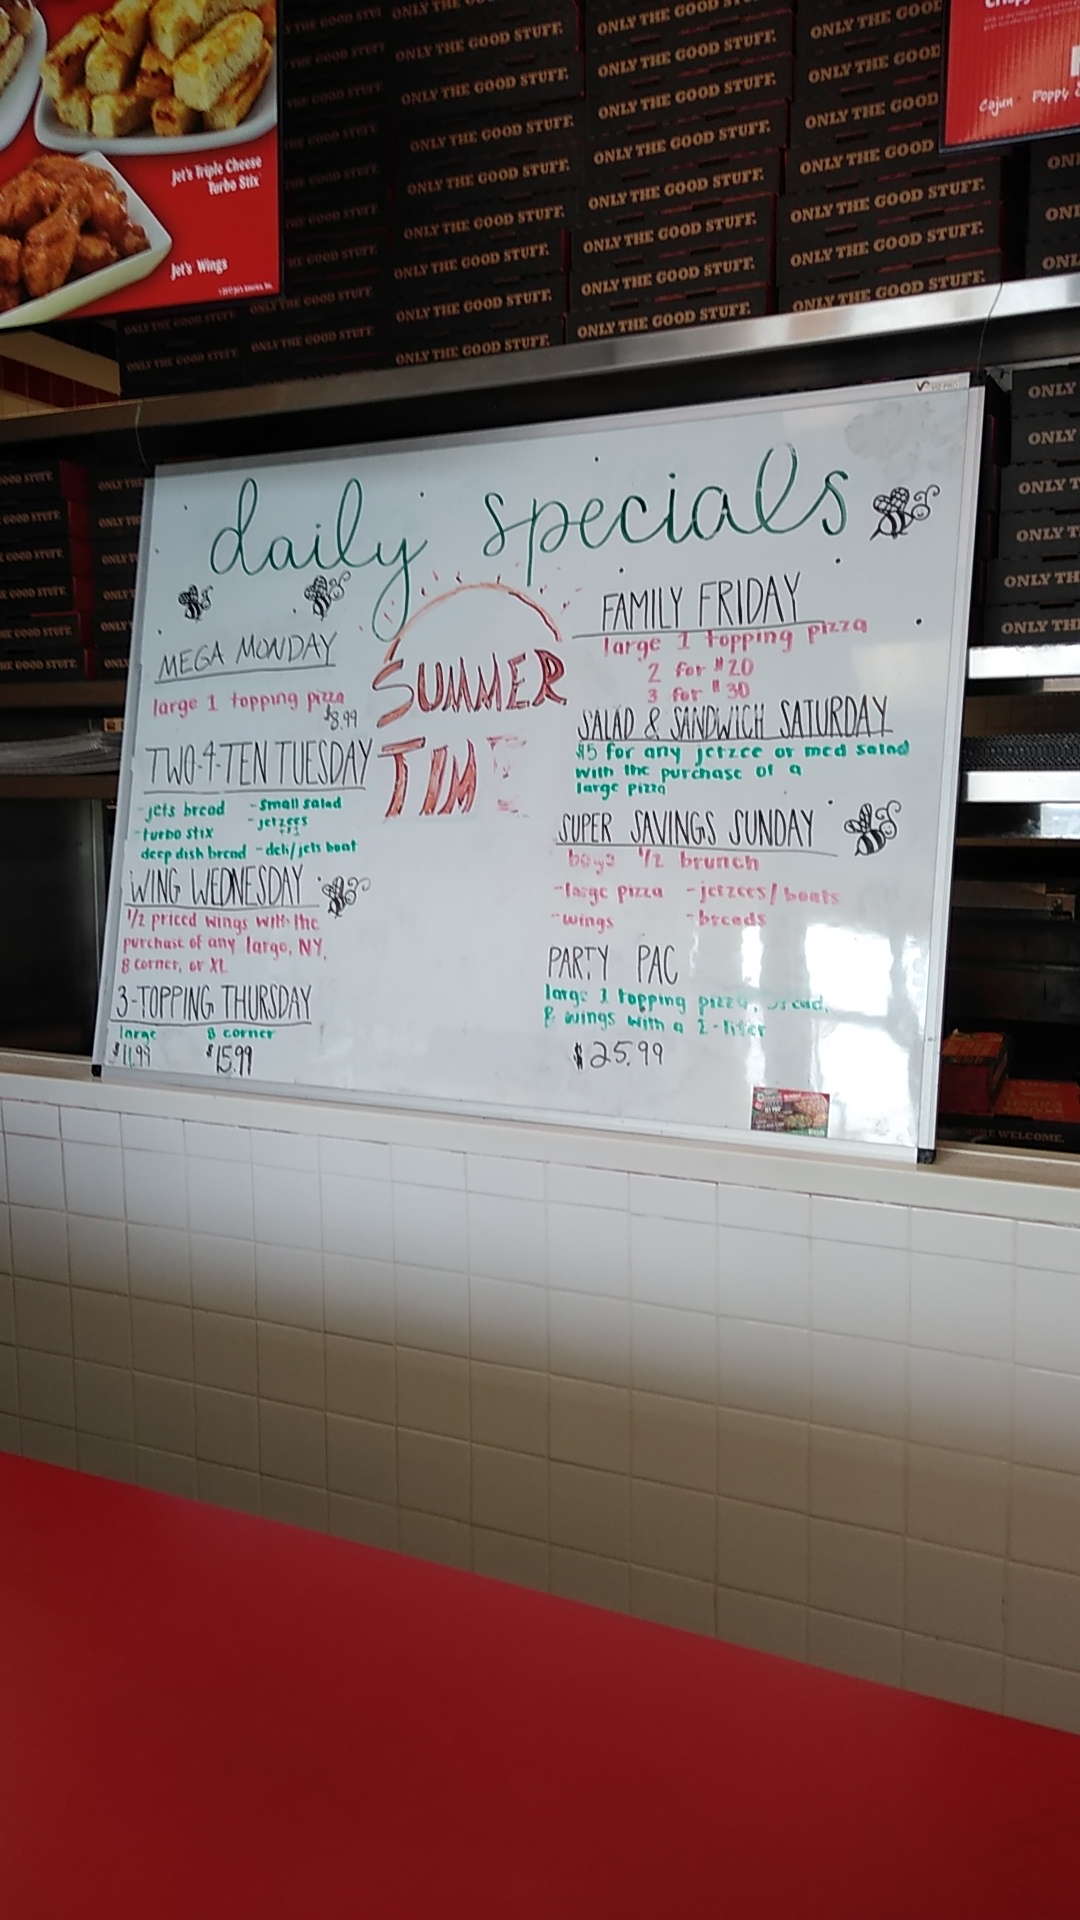 Jet's Triple Cheese
Turbo Stix
Jet's Wings
Cajun Poppy
ONLY THE GOOD STUFF.
daily specials
MEGA MONDAY
large 1 topping pizza
$8.99
TWO-4-TEN TUESDAY
-jets bread -small salad
-turbo stix -jetzees
deep dish bread -deli/jets boat
WING WEDNESDAY
1/2 priced wings with the
purchase of any large, NY,
8 corner, or XL
3-TOPPING THURSDAY
large 8 corner
$11.99 $15.99
SUMMER
TIME
FAMILY FRIDAY
large 1 topping pizza
2 for $20
3 for $30
SALAD & SANDWICH SATURDAY
$5 for any jetzee or med salad
with the purchase of a
large pizza
SUPER SAVINGS SUNDAY
bogo 1/2 brunch
-large pizza -jetzees/boats
-wings -breads
PARTY PAC
large 1 topping pizza, bread,
& wings with a 2-liter
$25.99
WELCOME.